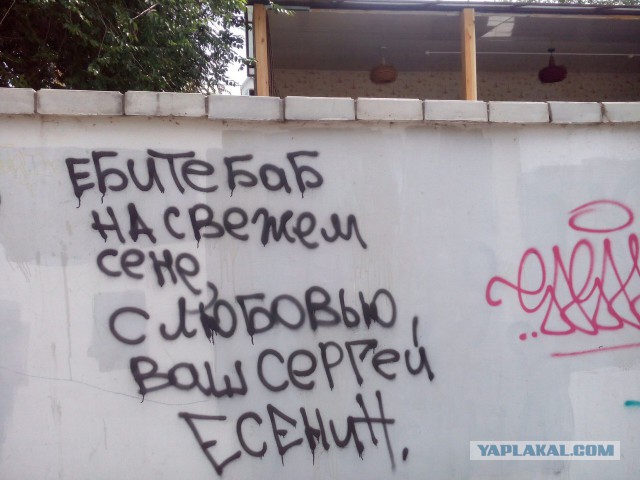 ЕБИТЕ БАБ
НА СВЕЖЕМ
СЕНЕ,
С ЛЮБОВЬЮ,
ВАШ СЕРГЕЙ
ЕСЕНИН.
YAPLAKAL.COM